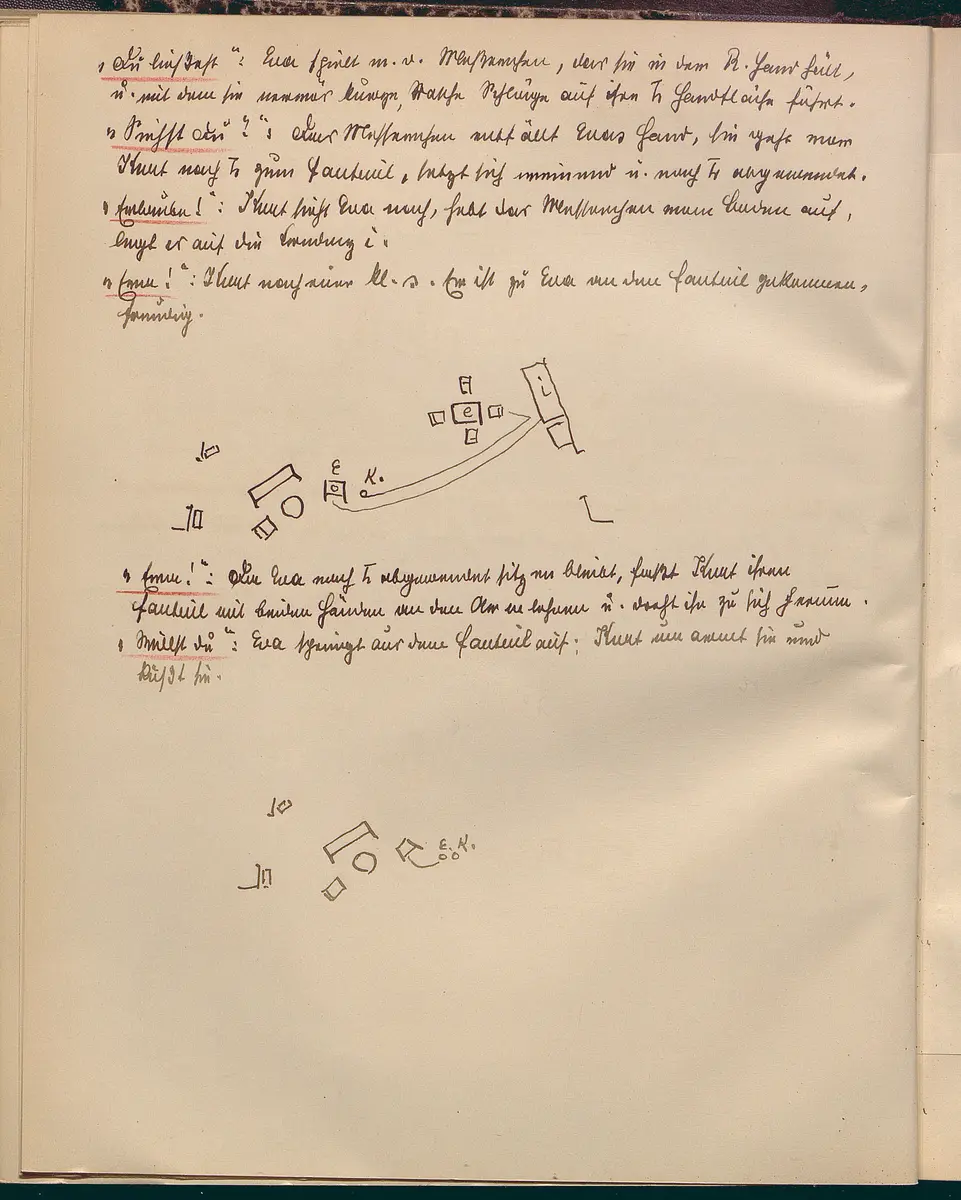 „Du ließest“: Eva spielt m. d. Messerchen, das sie in der R. Hand hält,
u. mit dem sie nervös kurze, rasche Schläge auf ihre L Handfläche führt.
„Siehst du?“: Das Messerchen entfällt Evas Hand, sie geht von
Kurt nach L zum Fauteuil, setzt sich weinend u. nach L abgewendet.
„Erlaube!“: Kurt sieht Eva nach, hebt das Messerchen vom Boden auf,
legt es auf die Kredenz i.
„Eva!“: Kurt nach einer kl. P. Er ist zu Eva an den Fauteuil gekommen,
freudig.
i
e
E K.
„Eva!“: Da Eva nach L abgewendet sitzen bleibt, faßt Kurt ihren
Fauteuil mit beiden Händen an den Armlehnen u. dreht ihn zu sich herum.
„Willst du“: Eva springt aus dem Fauteuil auf; Kurt umarmt sie und
küßt sie.
E. K.